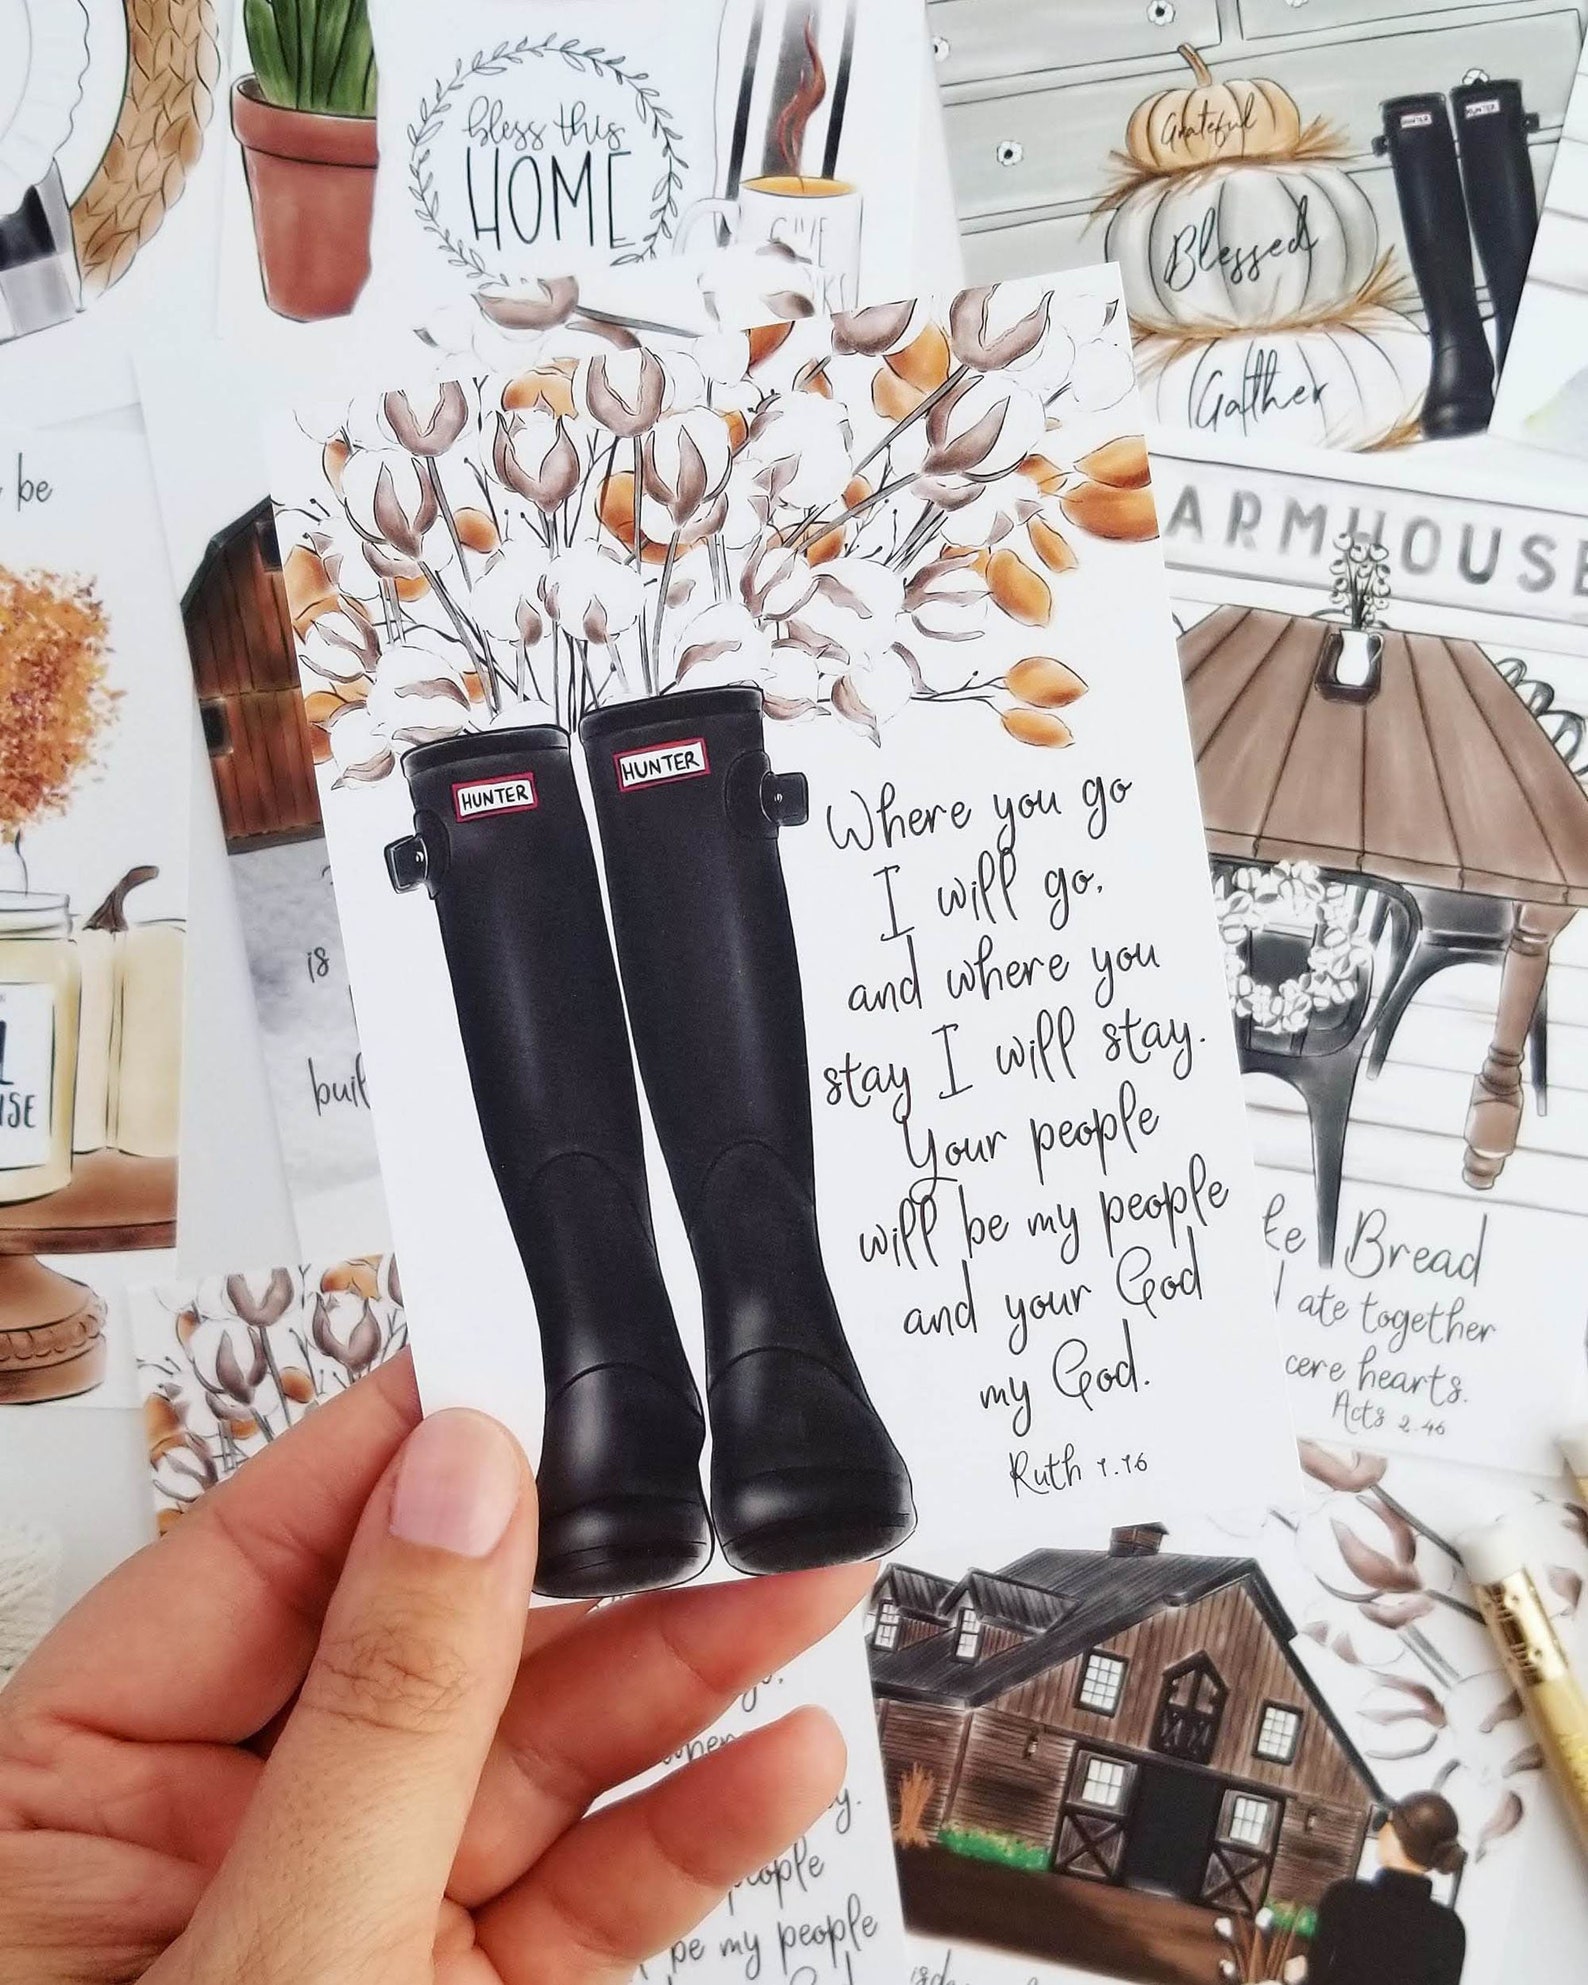 be
bless this
HOME
Grateful
Blessed
Gather
HUNTER
HUNTER
ARMHOUSE
HUNTER
HUNTER
Where you go
I will go,
and where you
stay I will stay.
Your people
will be my people
and your God
my God.
Ruth 1.16
is
Bread
ate together
hearts.
Acts 2.46
people
be my people